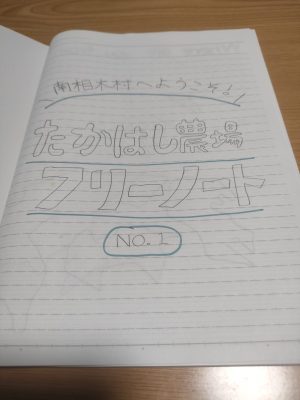 南相木村へようこそ!
たかはし農場
フリーノート
NO.1